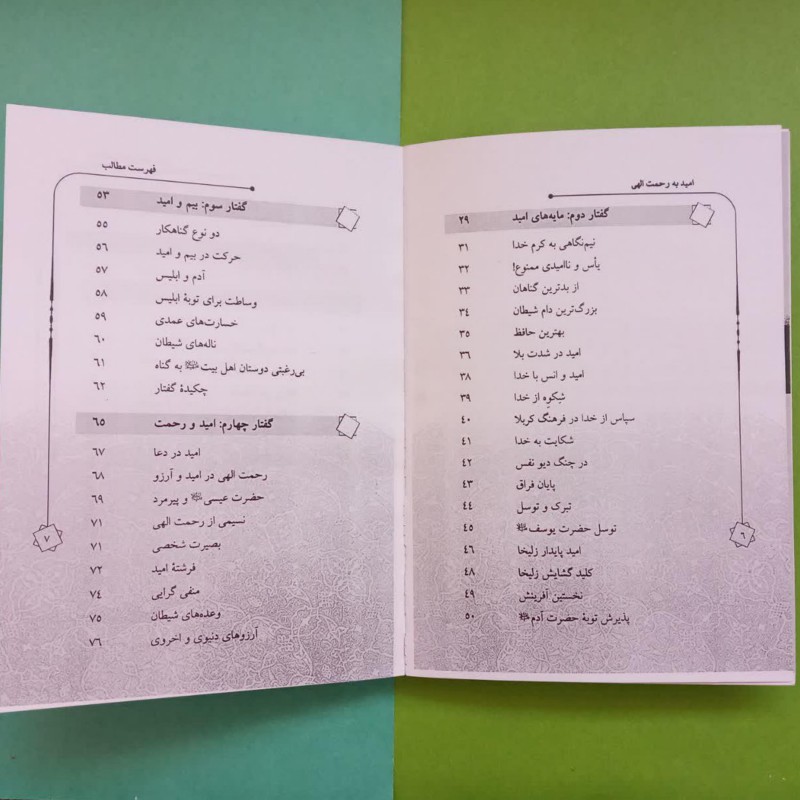 امید به رحمت الهی
گفتار دوم: مایه‌های امید ۲۹
نیم‌نگاهی به کرم خدا ۳۱
یأس و ناامیدی ممنوع! ۳۲
از بدترین گناهان ۳۳
بزرگ‌ترین دام شیطان ۳۴
بهترین حافظ ۳۵
امید در شدت بلا ۳۶
امید و انس با خدا ۳۸
شِکوِه از خدا ۳۹
سپاس از خدا در فرهنگ کربلا ۴۰
شکایت به خدا ۴۱
در چنگ دیو نفس ۴۲
پایان فراق ۴۳
تبرک و توسل ۴۴
توسل حضرت یوسف ۴۵
امید پایدار زلیخا ۴۶
کلید گشایش زلیخا ۴۸
نخستین آفرینش ۴۹
پذیرش توبهٔ حضرت آدم ۵۰
۶
فهرست مطالب
گفتار سوم: بیم و امید ۵۳
دو نوع گناهکار ۵۵
حرکت در بیم و امید ۵۶
آدم و ابلیس ۵۷
وساطت برای توبهٔ ابلیس ۵۸
خسارت‌های عمدی ۵۹
ناله‌های شیطان ۶۰
بی‌رغبتی دوستان اهل بیت به گناه ۶۱
چکیدهٔ گفتار ۶۲
گفتار چهارم: امید و رحمت ۶۵
امید در دعا ۶۷
رحمت الهی در امید و آرزو ۶۸
حضرت عیسی و پیرمرد ۶۹
نسیمی از رحمت الهی ۷۱
بصیرت شخصی ۷۱
فرشتهٔ امید ۷۲
منفی گرایی ۷۴
وعده‌های شیطان ۷۵
آرزوهای دنیوی و اخروی ۷۶
۷